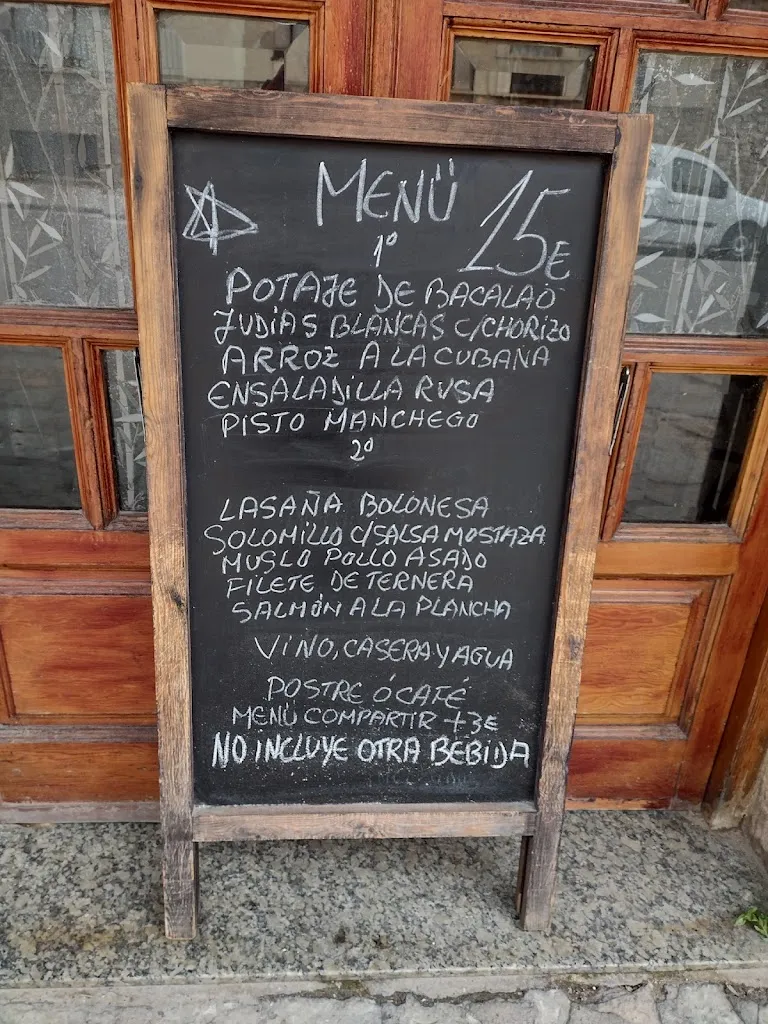 MENÜ 15E
1º
POTAJE DE BACALAO
JUDIAS BLANCAS C/CHORIZO
ARROZ A LA CUBANA
ENSALADILLA RUSA
PISTO MANCHEGO
2º
LASAÑA BOLONESA
SOLOMILLO C/SALSA MOSTAZA
MUSLO POLLO ASADO
FILETE DE TERNERA
SALMÓN A LA PLANCHA
VINO, CASERA Y AGUA
POSTRE Ó CAFÉ
MENÜ COMPARTIR +3E
NO INCLUYE OTRA BEBIDA